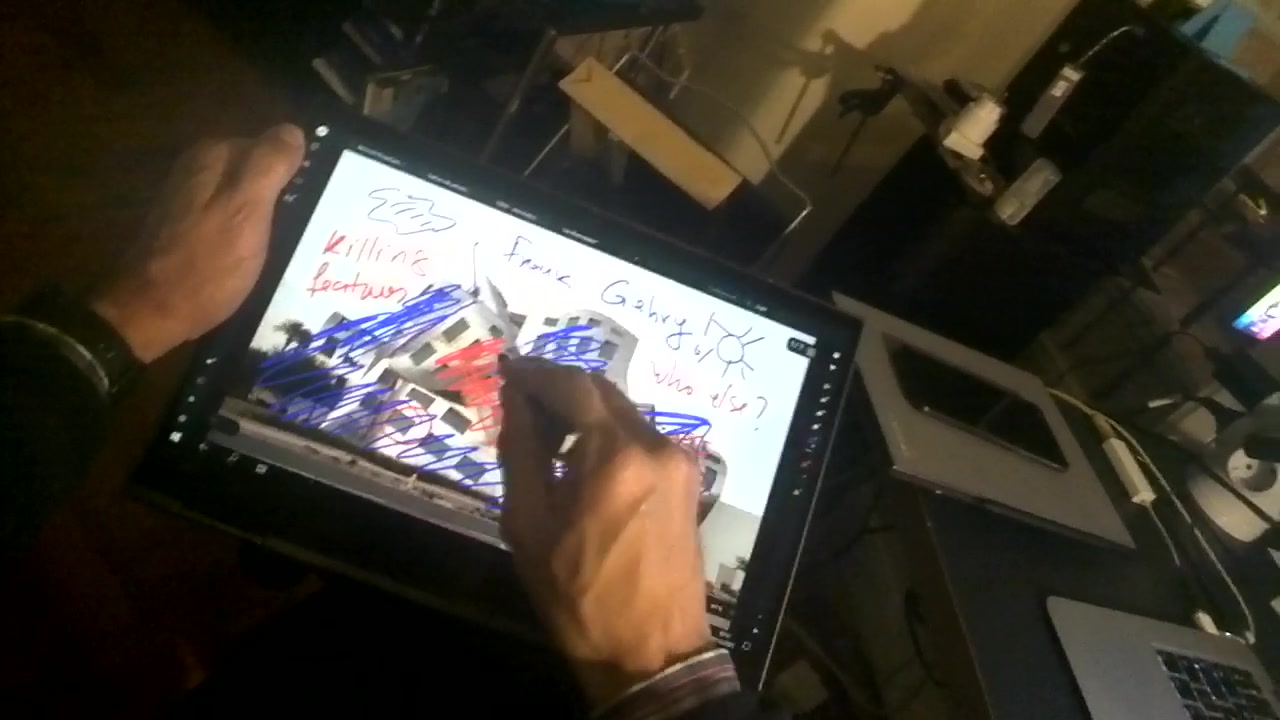 Killing
features
Frank Gehry
w/
who else?